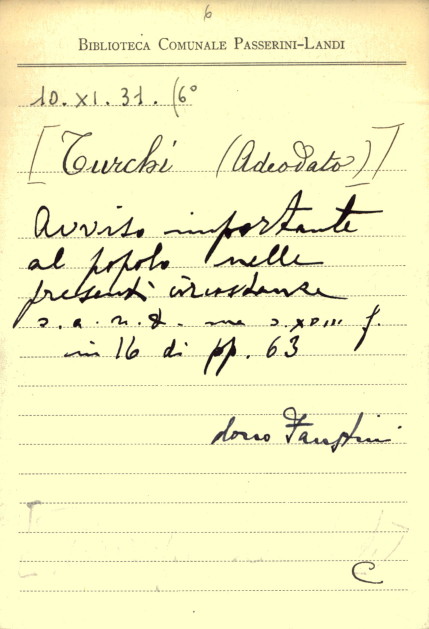 6
BIBLIOTECA COMUNALE PASSERINI-LANDI
10. XI. 31. (6°
[Turchi (Adeodato)]
Avviso importante
al popolo nelle
presenti circostanze
s. a. n. t. ma s. XVIII f.
in 16 di pp. 63
dono Faustini
C